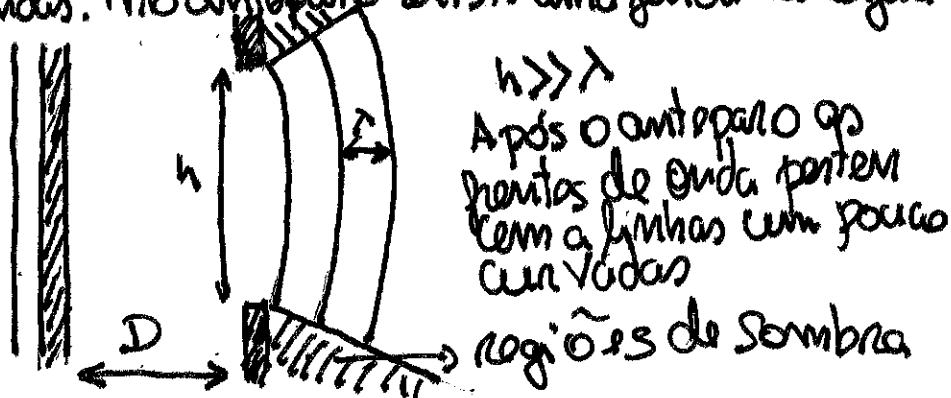 h>>λ
Após o anteparo as
frentes de onda perten
cem a linhas um pouco
curvadas
h
λ
D
regiões de sombra